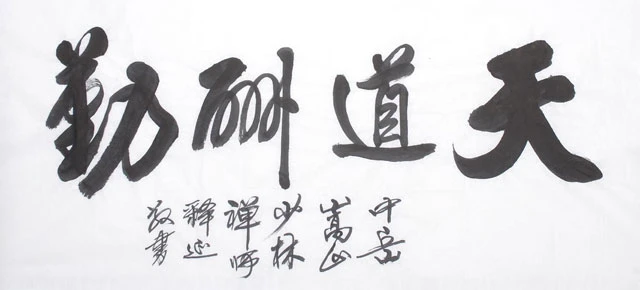 天道酬勤
中岳
嵩山
少林
禅师
释延
書